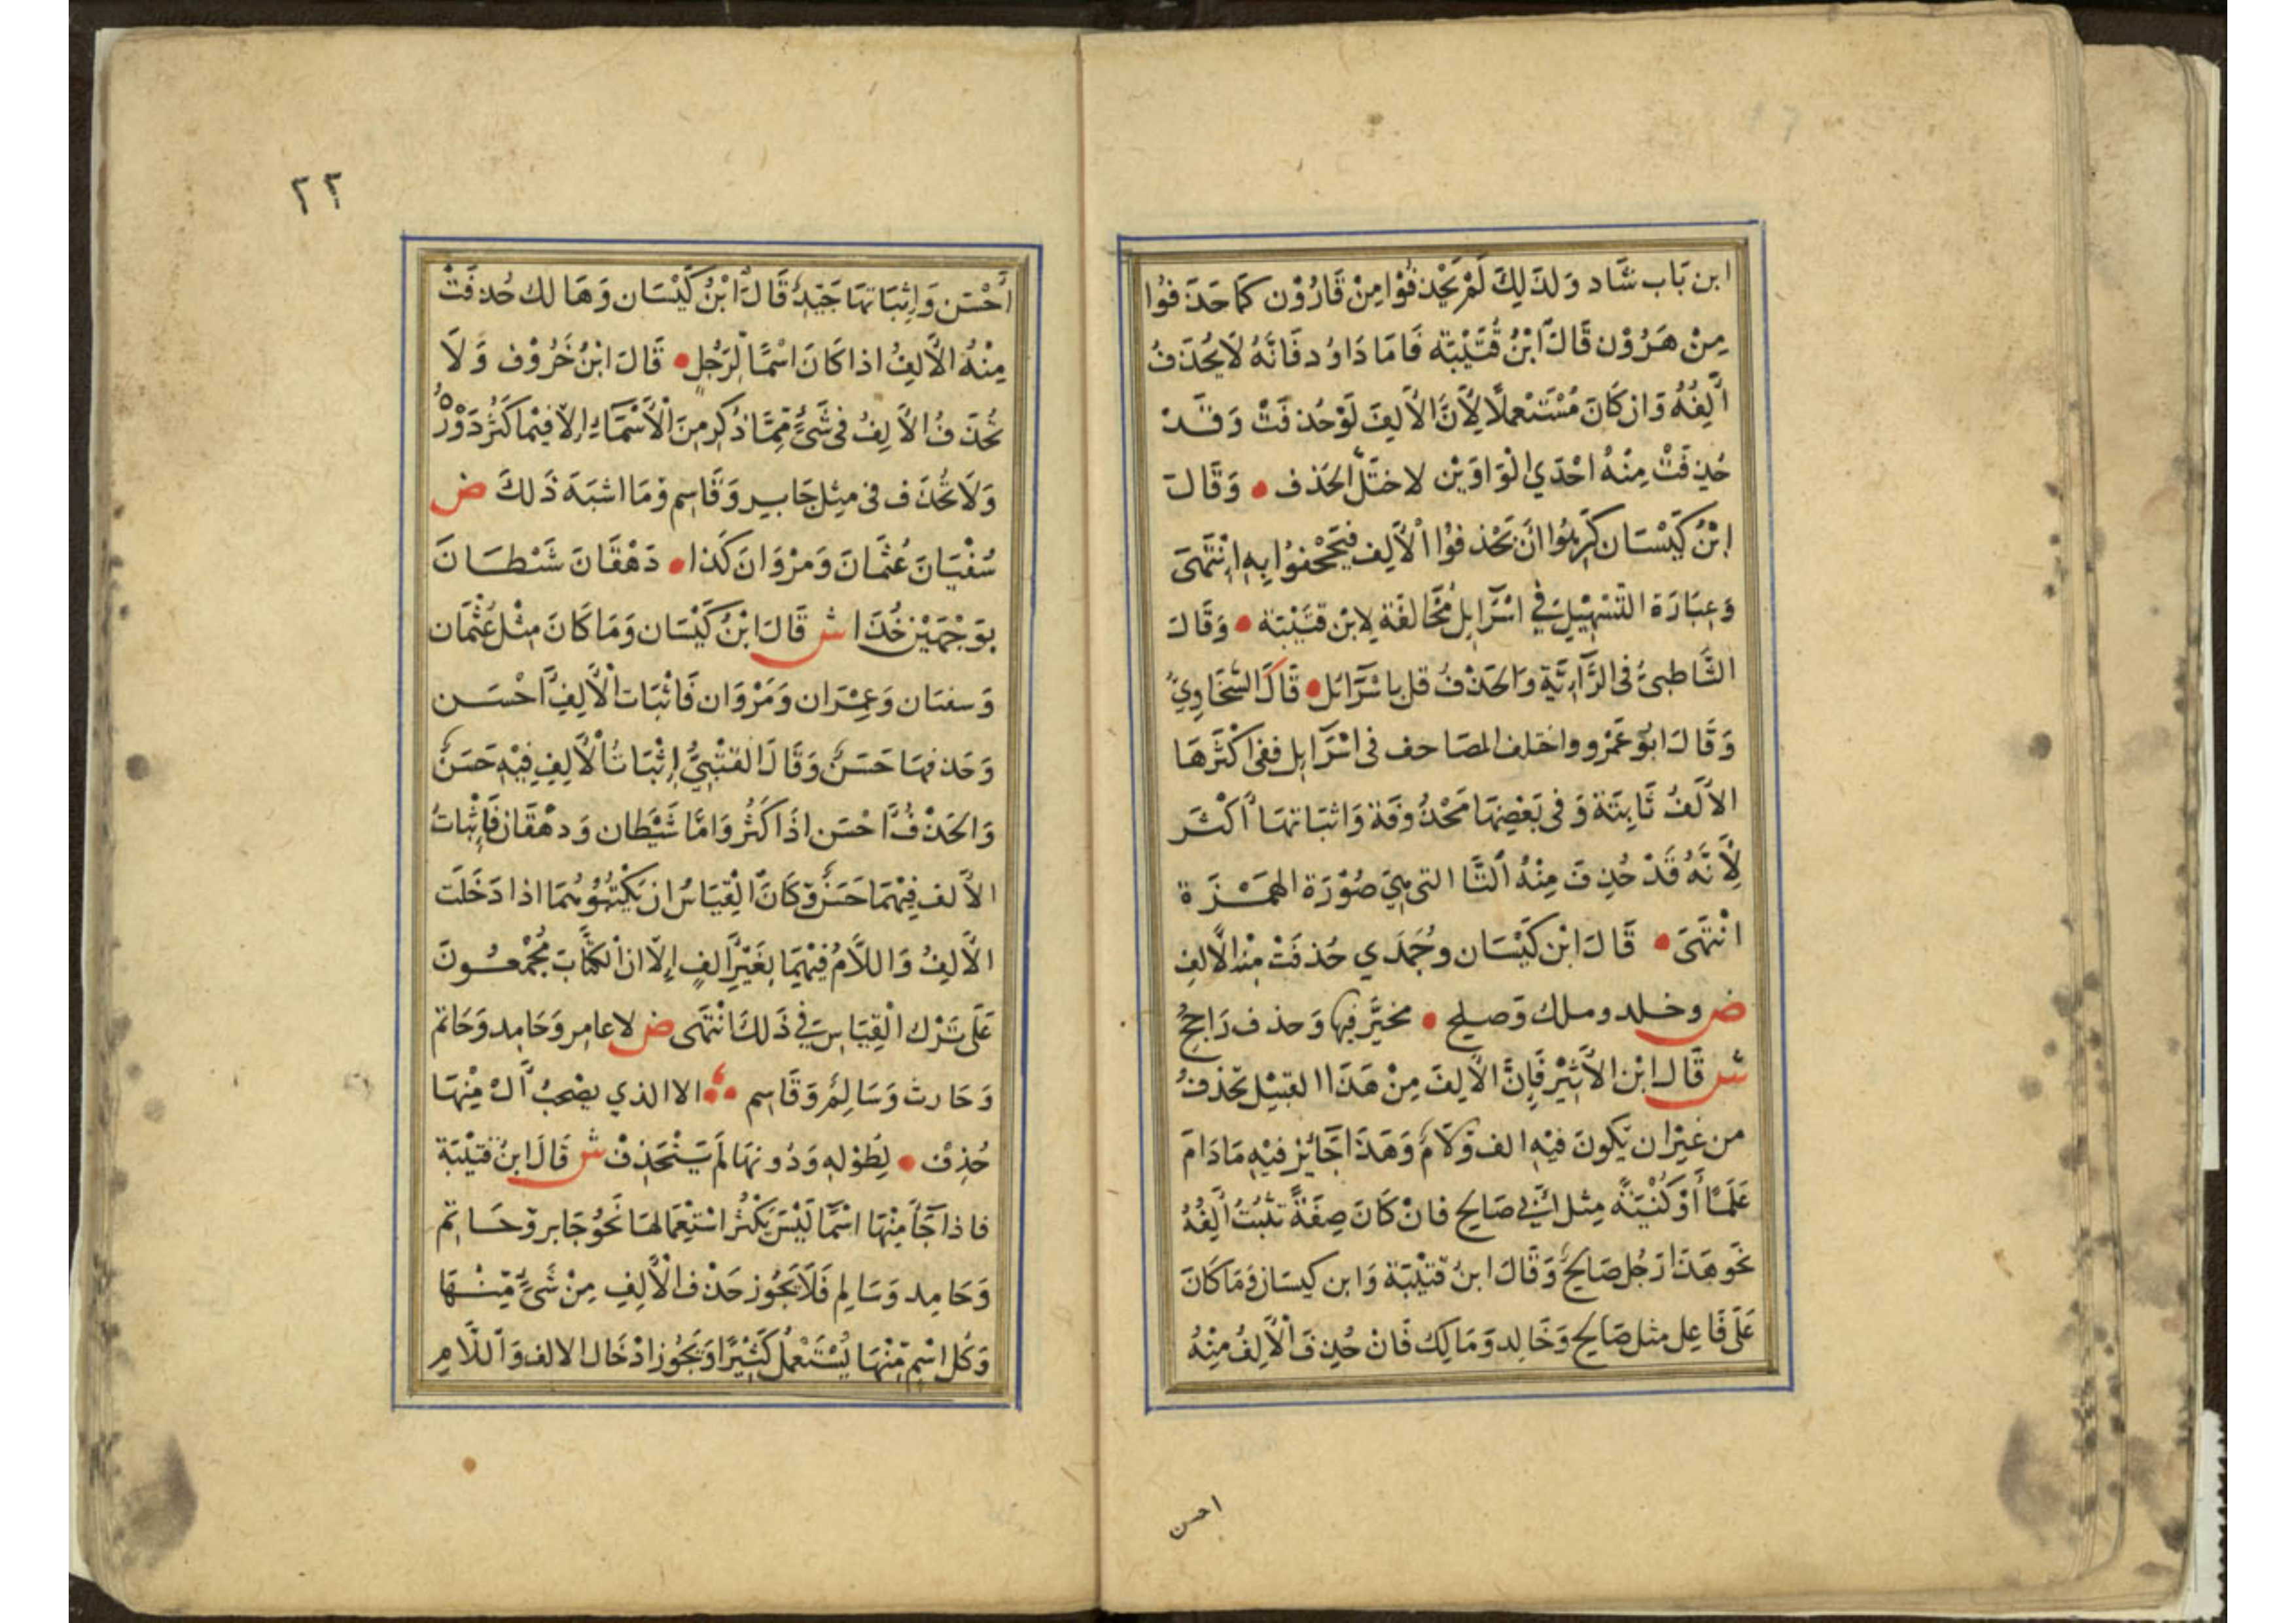 ابن بَاب شَاد وَلذَلِكَ لَمْ يَحْذفُوْا مِنْ قَارُوْن كَمَا حَذَفوُا
مِنْ هَرُوْن قَالَ ابْنُ قُتَيْبَة فَامَا دَاوُد فَانَّهُ لَا يُحْذَفُ
أَلِفُهُ وَان كَانَ مُسْتَعملًا لِأَنَّ الْأَلِفَ لَوْ حُذفَتْ وَقَدْ
حُذِفَتْ مِنْهُ احْدَي الْوَاوَيْن لاختَلَّ الحَذف • وَقَالَ
ابْنُ كَيْسَان كَرِهُوا انَ يَحْذفوُا الْأَلِف فيَجْحْفوُا بِهِ انْتَهَى
وَعِبَارَة التَّسْهِيْلِ فِي اسْرَايِل مُخَالفَة لِابْن قتَيْبَة • وَقَالَ
الشَّاطبيُّ فى الرَّآئِيَّةِ وَالحَذْفُ قل باسْرَآئل • قَالَ السَّخَاوِيُّ
وَقَالَ ابوُ عَمْرو واختلف المصَاحف فى اسْرَايل ففى اكْثَرهَا
الأَلَفُ ثَابِتَة وَفى بَعْضِهَا مَحْذُوفَة وَاثبَاتهَا أكْثَر
لِأَنَّهُ قَدْ حُذِفَ مِنْهُ اليَا التى هِيَ صُوْرَة الهَمْزَة
انْتَهَى • قَالَ ابْن كَيْسَان وجُمَدي حُذفَتْ مِنْه الأَلِف
ض وخلد وملك وَصلح • مخيَّر فيها وَحذف رَاجِحُ
ش قَال ابْن الأَثِيْر فَإنَّ الْأَلِفَ مِنْ هَذَا القَبيْل تحْذفُ
من غيْر ان يَكونَ فيْهِ الف وَلَامُ وَهَذَا جَائِز فيْهِ مَادَامَ
عَلَمًا أَوْ كُنْيَةً مِثل أَبي صَالح فانْ كَانَ صِفَةً تثْبُتُ أَلِفُهُ
نَحو هَذَا رَجُل صَالحُ وَقَالَ ابنُ قتَيْبَة وَابن كيسَان وَمَا كَانَ
عَلَى فَاعِل مثل صَالح وَخَالِد وَمَالِك فَانْ حُذِفَ الْأَلِفُ مِنْهُ
احسن
٢٢
أَحْسَن وَإِثبَاتهَا جَيّدُ قَالَ ابْنُ كَيْسَان وَهَالك حُذفَتْ
مِنْهُ الْأَلِفُ اذا كَانَ اسْمًا لِرَجُلٍ • قَالَ ابْنُ خَرُوْف وَلَا
تُحْذَفُ الْأَلِفُ فى شَيْءٍ مِمَّا ذُكِرَ مِنَ الْأَسْمَاءِ إلَّا فيْمَا كَثُرَ دَوْرُهُ
وَلَا تُحْذَف فى مِثل جَابِر وَقَاسِم وَمَا اشبَهَ ذَلكَ ض
سُفْيَانَ عُثمَانَ وَمَرْوَانَ كَذا • دَهْقَانَ شَيْطَانَ
بوَجْهَيْن خُذَا ش قَالَ ابْنُ كَيْسَان وَمَا كَانَ مِثْل عُثْمَان
وَسفيَان وَعِمْرَان وَمَرْوَان فَاثْبَات الْأَلِفِ احْسَن
وَحَذفهَا حَسَنُ وَقَالَ القتْبِيُّ إِثْبَاتُ الْأَلِفِ فِيْهِ حَسَنُ
وَالحَذْفُ احْسَن اذَا كَثُرَ وَامَّا شَيْطَان وَدهْقَان فَإِثْبَاتُ
الأَلف فِيْهمَا حَسَنُ وَكَانَ الْقِيَاسُ ان يَكْتُبُوهُمَا اذا دَخَلَت
الْأَلِفُ وَاللَّامُ فِيْهِمَا بِغَيْرِ أَلفٍ إِلَّا ان الكُتَّابَ مُجْمعُونَ
عَلَى تَرْك الْقِيَاسِ فِي ذَلكَ انْتَهَى ض لا عامِر وَحَامِد وَحَاتم
وَحَارث وَسَالِمُ وَقَاسِم •• الا الذي يصْحبُ أَل مِنْهَا
حُذِفَ • لِطُوْلهِ وَدُونهَا لَم يَنْحَذِفْ ش قَالَ ابنُ قتَيْبَة
فاذا جَآءَ مِنْهَا اسْمًا لَيْسَ يَكْثُر اسْتِعْمَالهَا نَحْوُ جَابر وَحَاتِم
وَحَامِد وَسَالم فَلَا يَجُوز حَذْف الْأَلِفِ مِنْ شَيْءٍ مِنْهَا
وَكُل اسْمٍ مِنْهَا يُسْتَعْمَلُ كَثِيْرًا وَيَجُوز ادْخَال الالف وَاللَّامِ